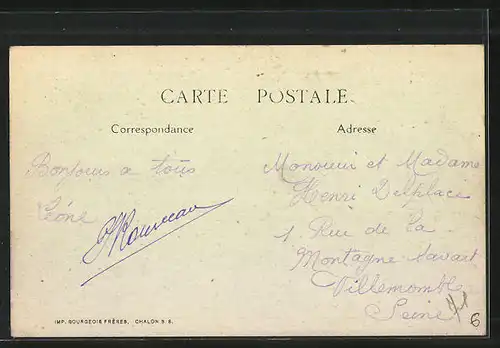 CARTE POSTALE.
Correspondance
Adresse
Bonjours a tous
Léone
Monsieur et Madame
Henri Delplace
1 Rue de la
Montagne Savart
Villemomble
Seine
6
IMP. BOURGEOIS FRÈRES, CHALON S. S.